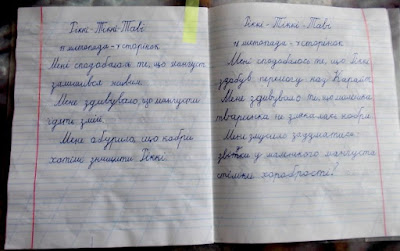 Рікі-Тіккі-Таві
11 листопада - 7 сторінок
Мені сподобалось те, що мангуст
залишився живим.
Мене здивувало, що мангусти
їдять змій.
Мене обурило, що кобри
хотіли знищити Ріккі.
Ріккі-Тіккі-Таві
11 листопада - 7 сторінок
Мені сподобалось те, що Ріккі
здобув перемогу над Карайт
Мене здивувало те, що маленька
тваринка не злякалась кобри.
Мене змусило задуматися
звідки у маленького мангуста
стільки хоробрості?